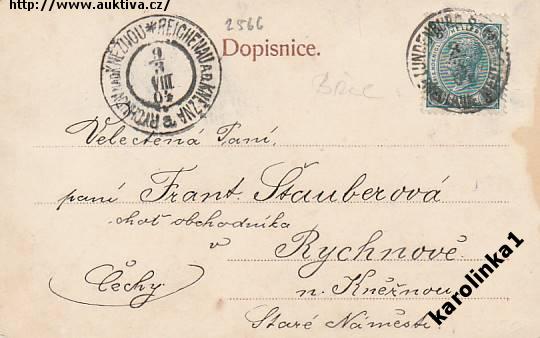 http://www.auktiva.cz/
2566
Dopisnice.
REICHENAU A.D. KNĚŽNA
RYCHNOV NAD KNĚŽNOU
9
3
VIII
04
LUNDENBURG
Velectená Paní,
paní Frant. Štauberová
choť obchodníka
v Rychnově
n. Kněžnou
Čechy
Staré Náměstí
karolinka1